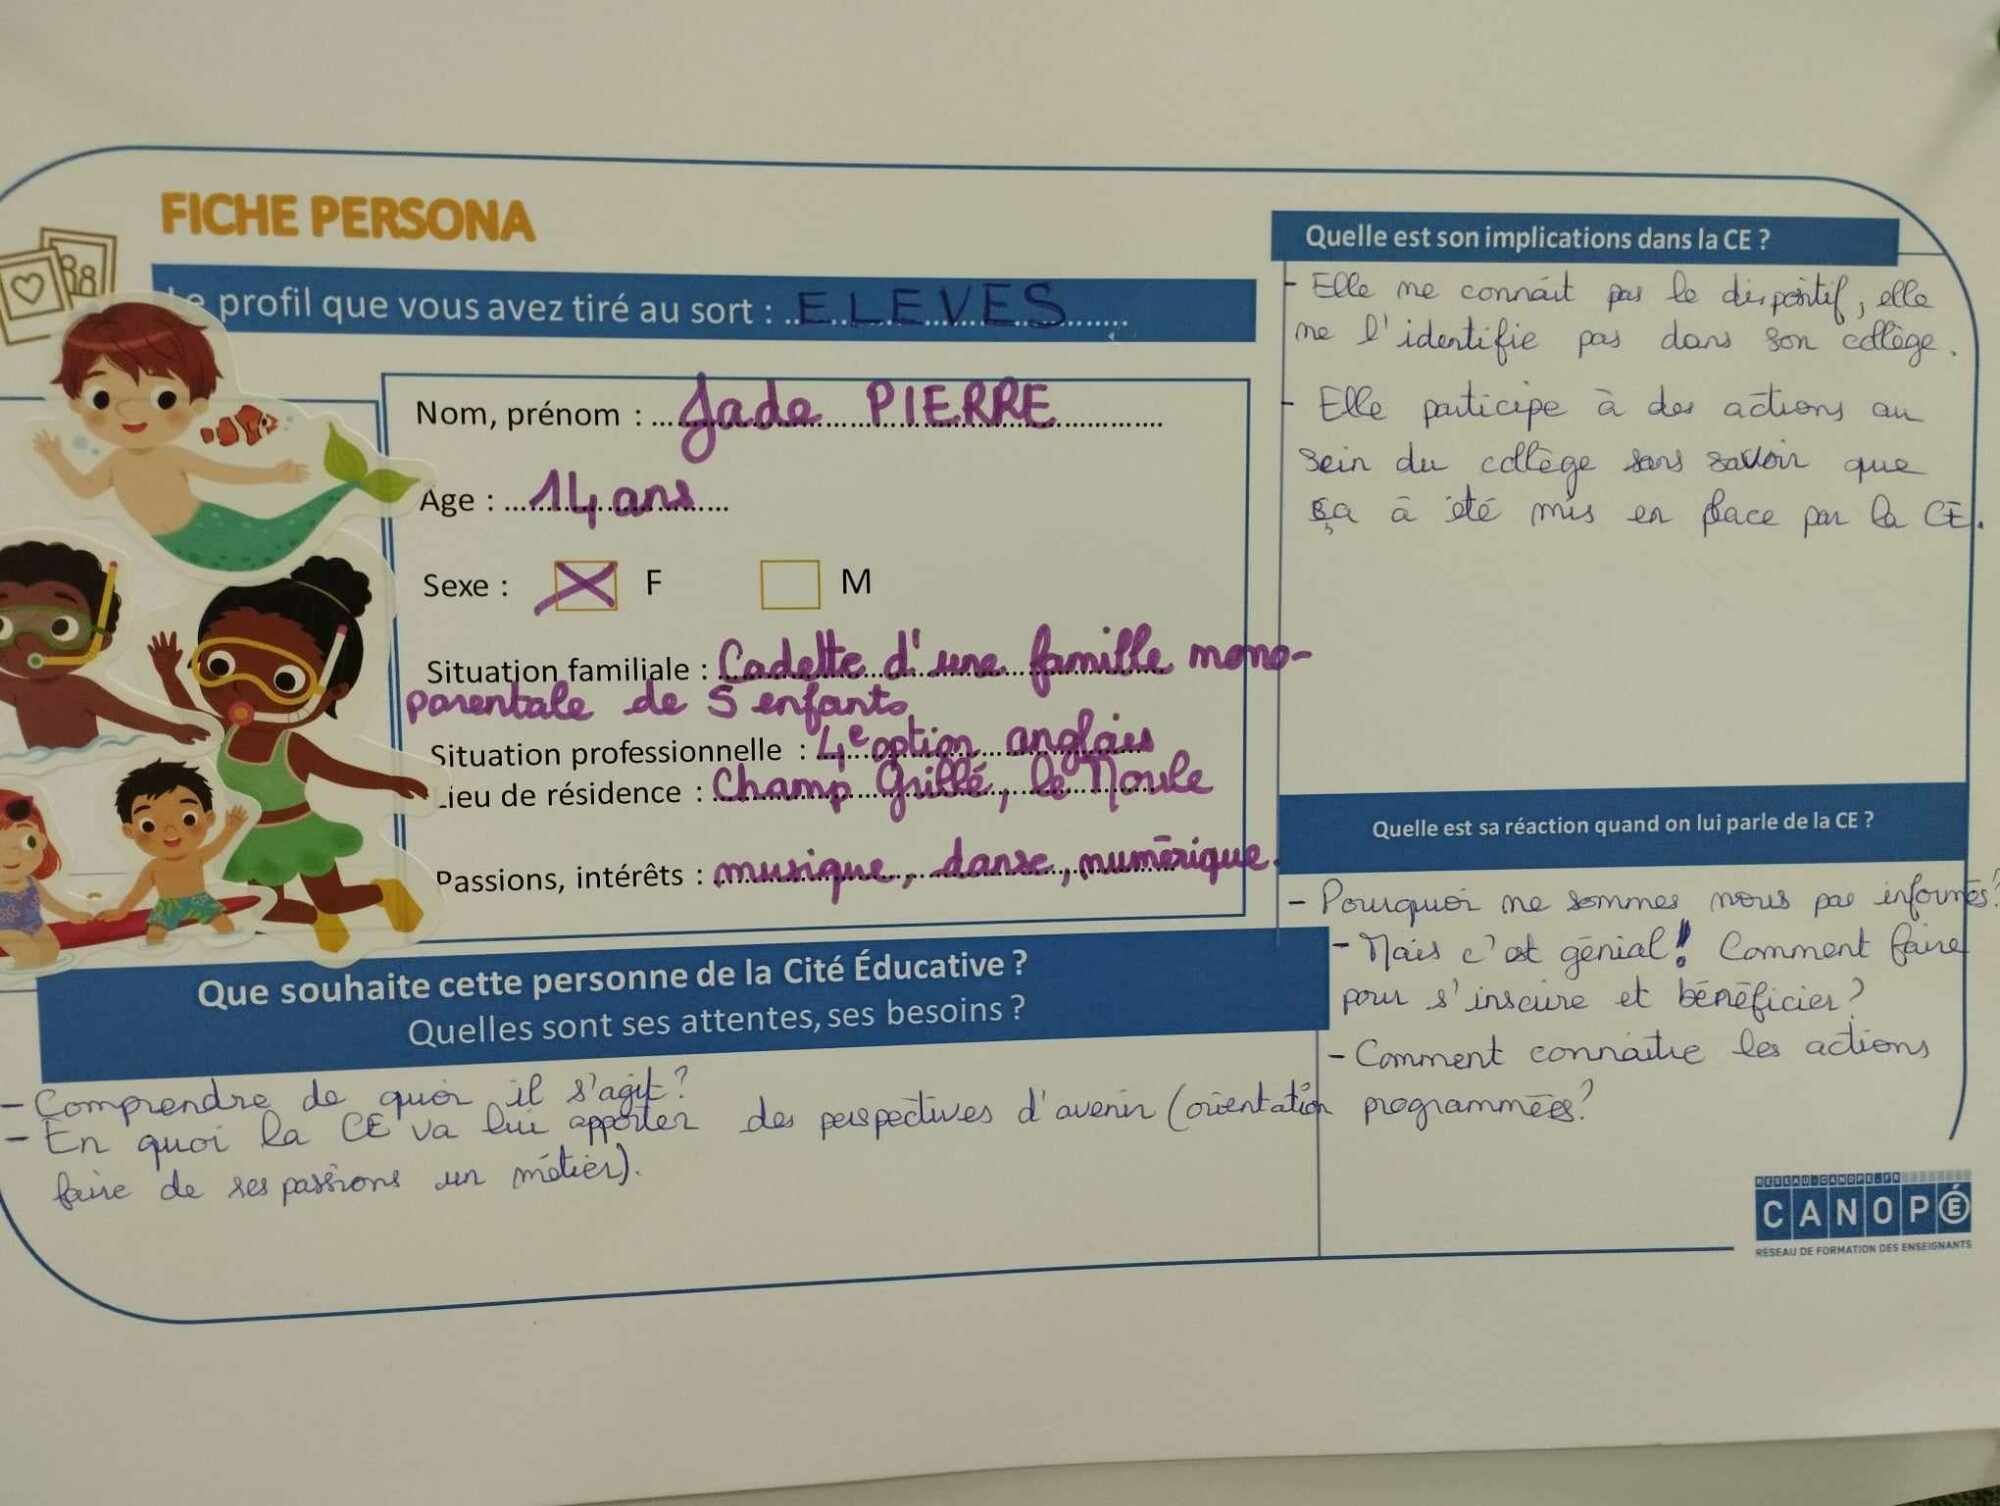 FICHE PERSONA
Le profil que vous avez tiré au sort : ELEVES
Nom, prénom : Jade PIERRE
Age : 14 ans
Sexe : F M
Situation familiale : Cadette d'une famille mono-
parentale de 5 enfants
Situation professionnelle : 4e option anglais
Lieu de résidence : Champ Grillé, le Moule
Passions, intérêts : musique, danse, numérique.
Que souhaite cette personne de la Cité Éducative ?
Quelles sont ses attentes, ses besoins ?
- Comprendre de quoi il s'agit ?
- En quoi la CE va lui apporter des perspectives d'avenir (orientation
faire de ses passions un métier).
Quelle est son implications dans la CE ?
- Elle ne connaît pas le dispositif, elle
ne l'identifie pas dans son collège.
- Elle participe à des actions au
sein du collège sans savoir que
ça à été mis en place par la CE.
Quelle est sa réaction quand on lui parle de la CE ?
- Pourquoi ne sommes nous pas informés ?
- Mais c'est génial ! Comment faire
pour s'inscrire et bénéficier ?
- Comment connaitre les actions
programmées ?
RESEAU-CANOPE.FR
CANOPÉ
RÉSEAU DE FORMATION DES ENSEIGNANTS